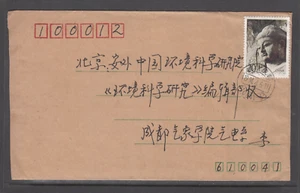 100012
北京.安外中国环境科学研究院
《环境科学研究》编辑部收
成都气象学院气象系 李
610041